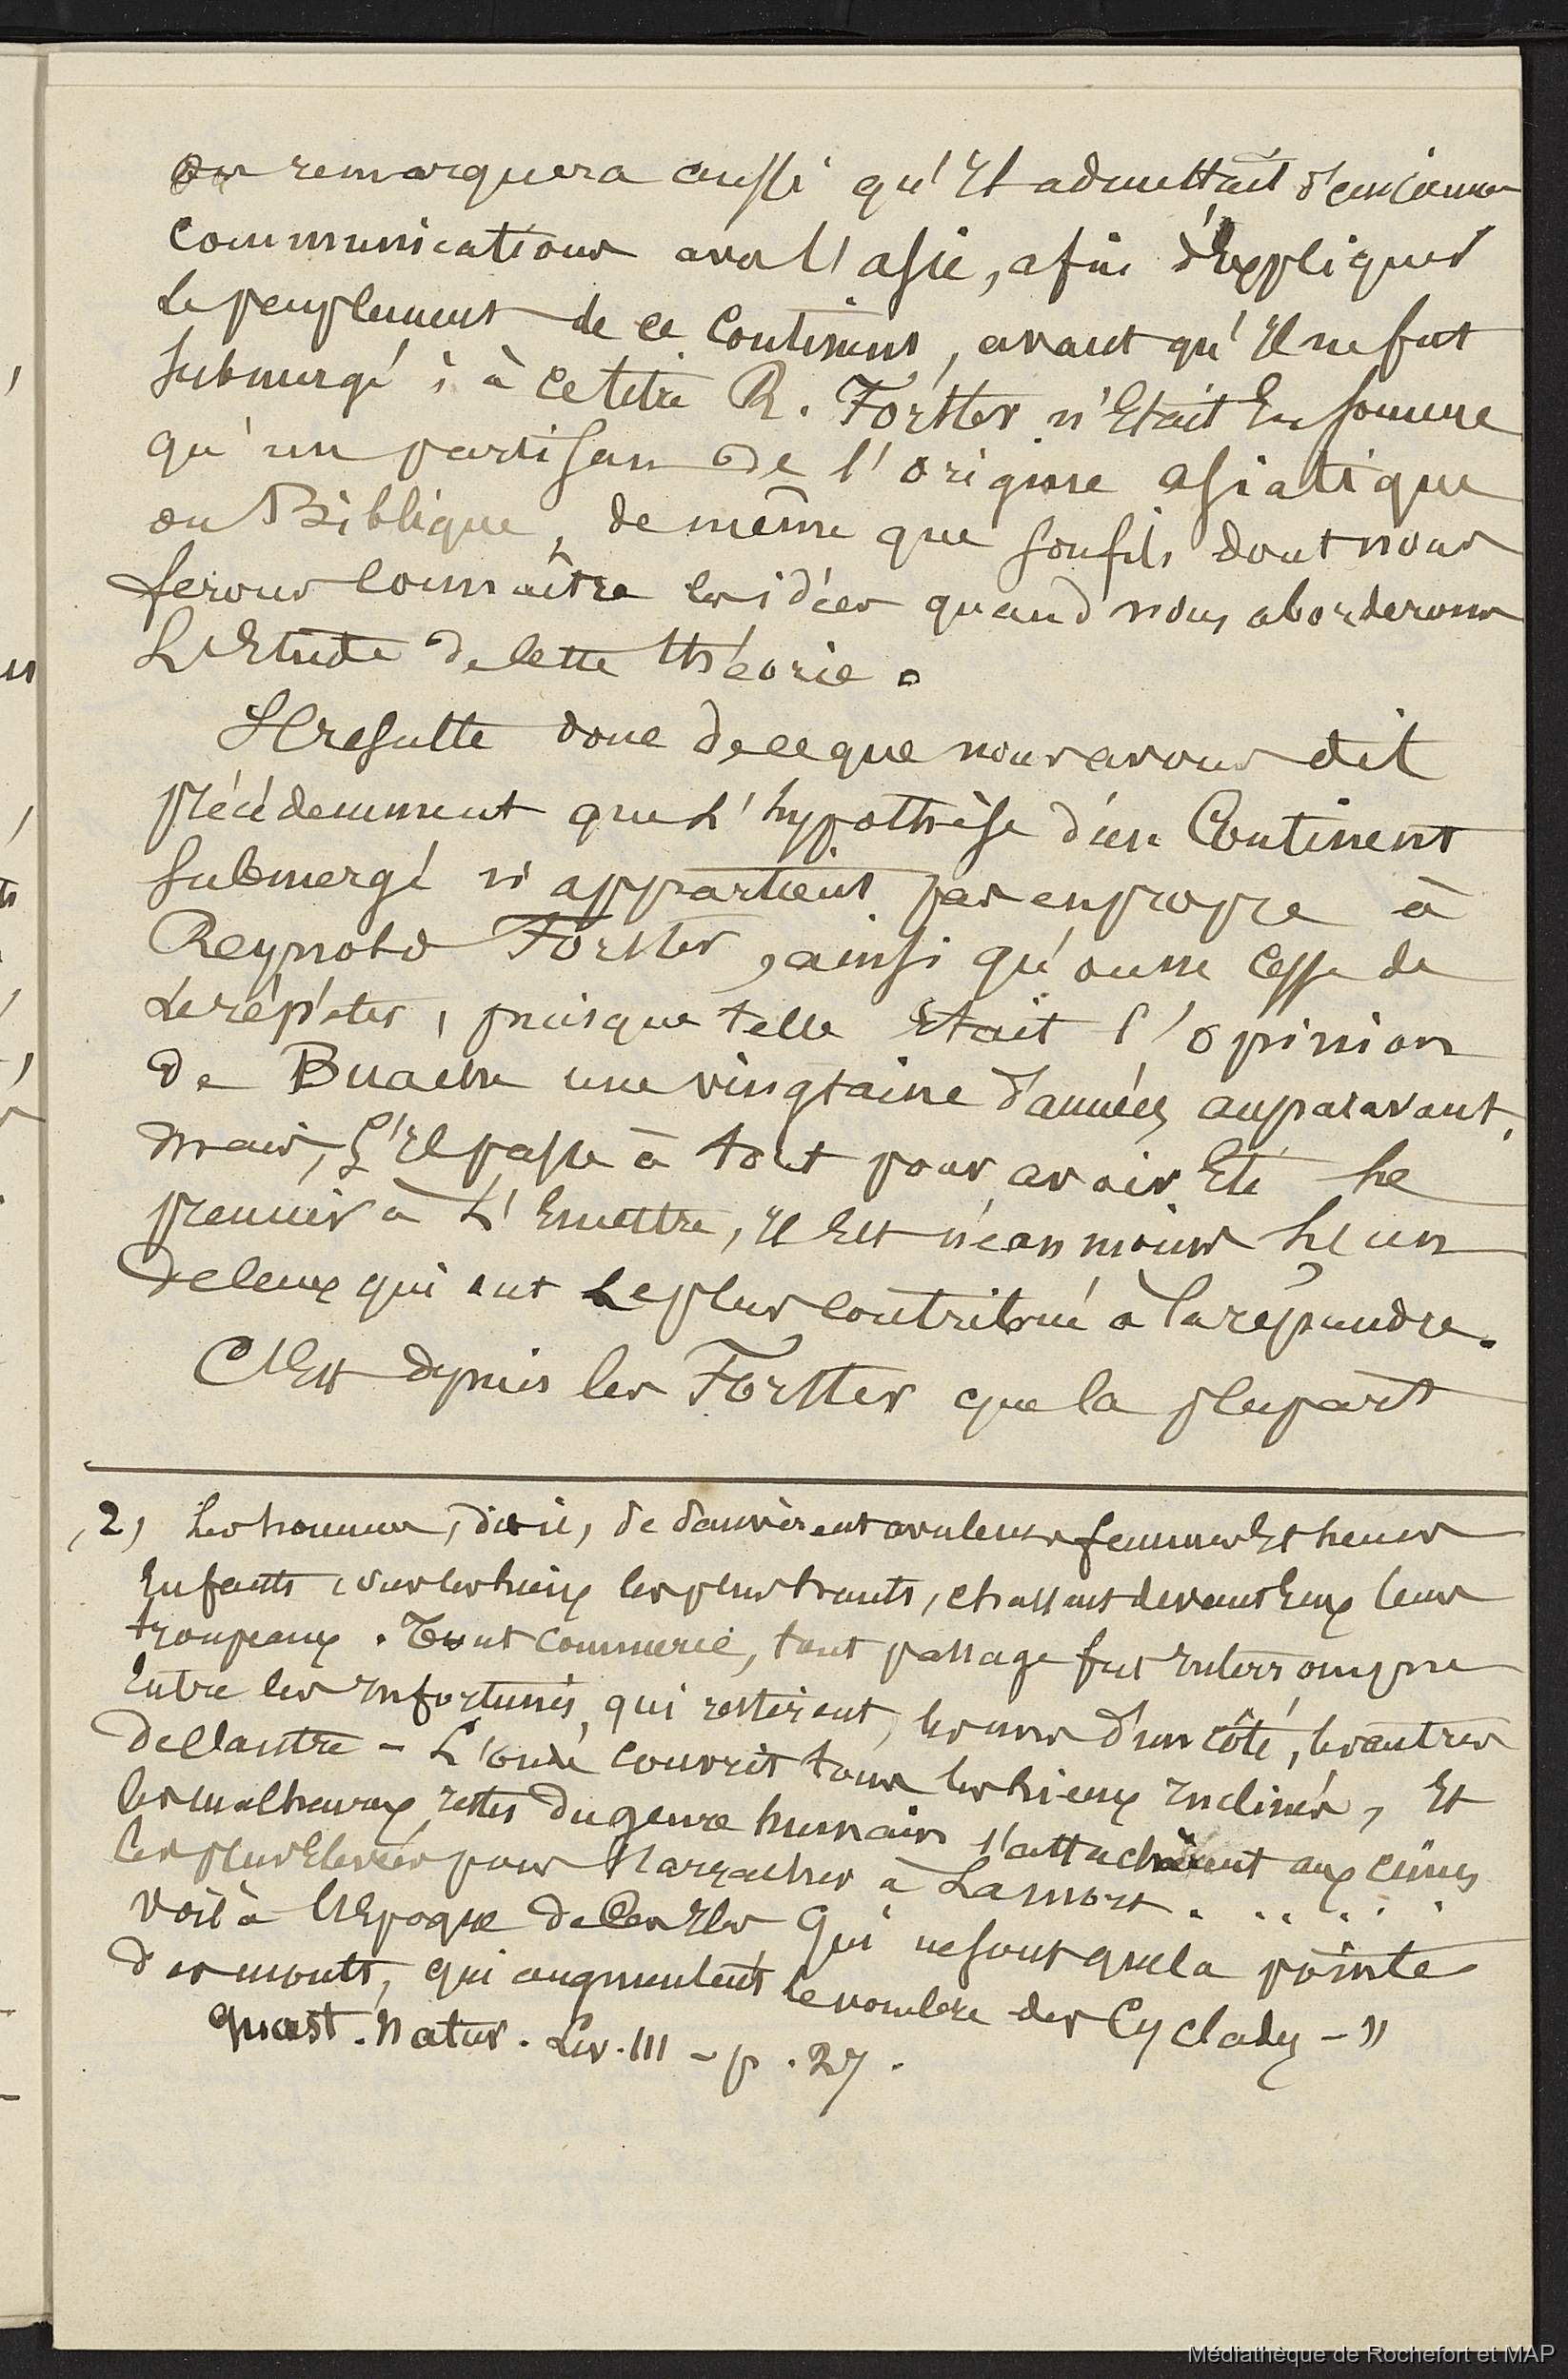 on remarquera aussi qu'Il admettait d'anciennes
communications avec l'asie, afin d'Expliquer
Le peuplement de ce Continent, avant qu'Il ne fut
submergé ; à ce titre R. Forster n'Etait En somme
qu'un partisan de l'origine asiatique
ou Biblique, de même que son fils dont nous
ferons connaître les idées quand nous aborderons
L'Etude de cette théorie.
Il resulte donc de ce que nous avons dit
précédemment que L'hypothèse d'un Continent
submergé n'appartient pas en propre à
Reynold Forster, ainsi qu'on ne cesse de
Le répéter, puisque telle Etait l'opinion
de Buache une vingtaine d'années auparavant.
mais, s'Il passe à tort pour avoir Eté le
premier à L'Emettre, Il Est néanmoins L'un
de ceux qui ont Le plus contribué à la répandre.
C'Est depuis les Forster que la plupart
(2) Les hommes, dit-il, se sauvèrent avec leurs femmes Et leurs
Enfants sur les lieux les plus hauts, chassant devant Eux leurs
troupeaux. Tout commerce, tout passage fut Interrompu
Entre les Infortunés, qui restèrent, les uns d'un côté, les autres
de l'autre - L'onde couvrit tous les lieux Inclinés, Et
les malheureux restes du genre humain s'attachèrent aux cîmes
les plus Elevées pour s'arracher à La mort. . . . . .
voilà l'Epoque de Ces Iles Qui ne sont que la pointe
des monts, qui augmentent le nombre des Cyclades - "
Quæst. Natur. Liv. III - p. 27.
Médiathèque de Rochefort et MAP